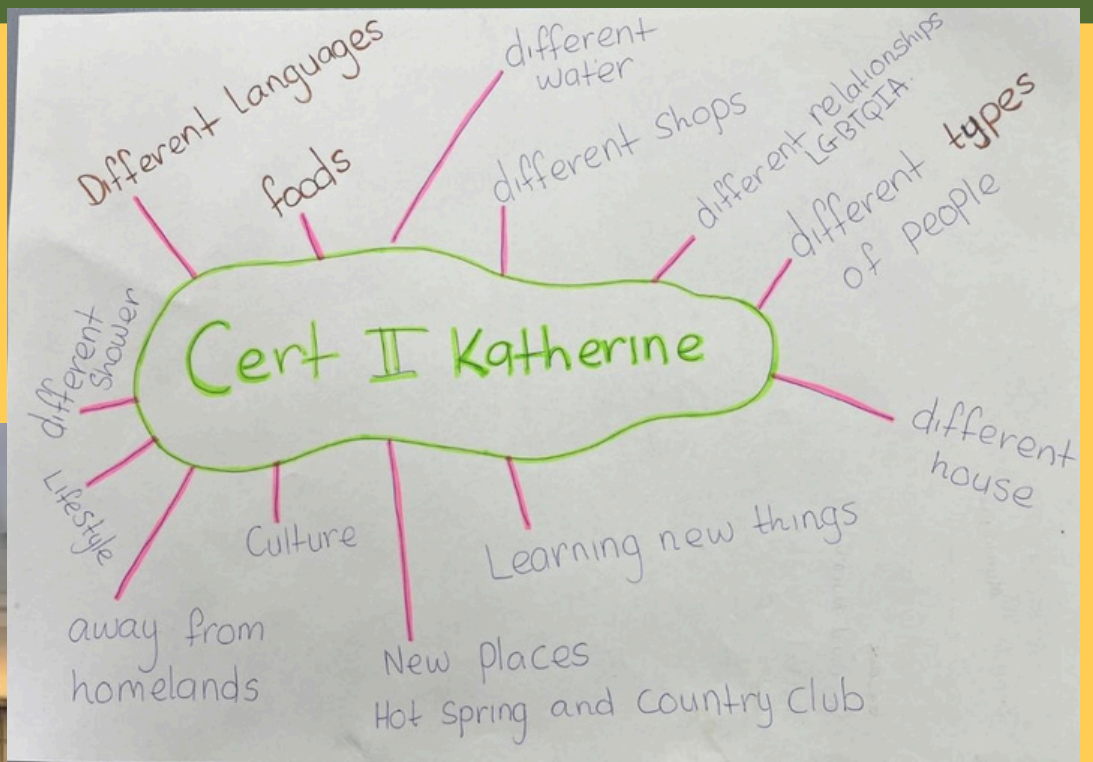 Different Languages
foods
different
water
different shops
different relationships
LGBTQIA.
different types
of people
different
house
Learning new things
New places
Hot Spring and country club
Culture
away from
homelands
Lifestyle
different
shower
Cert II Katherine